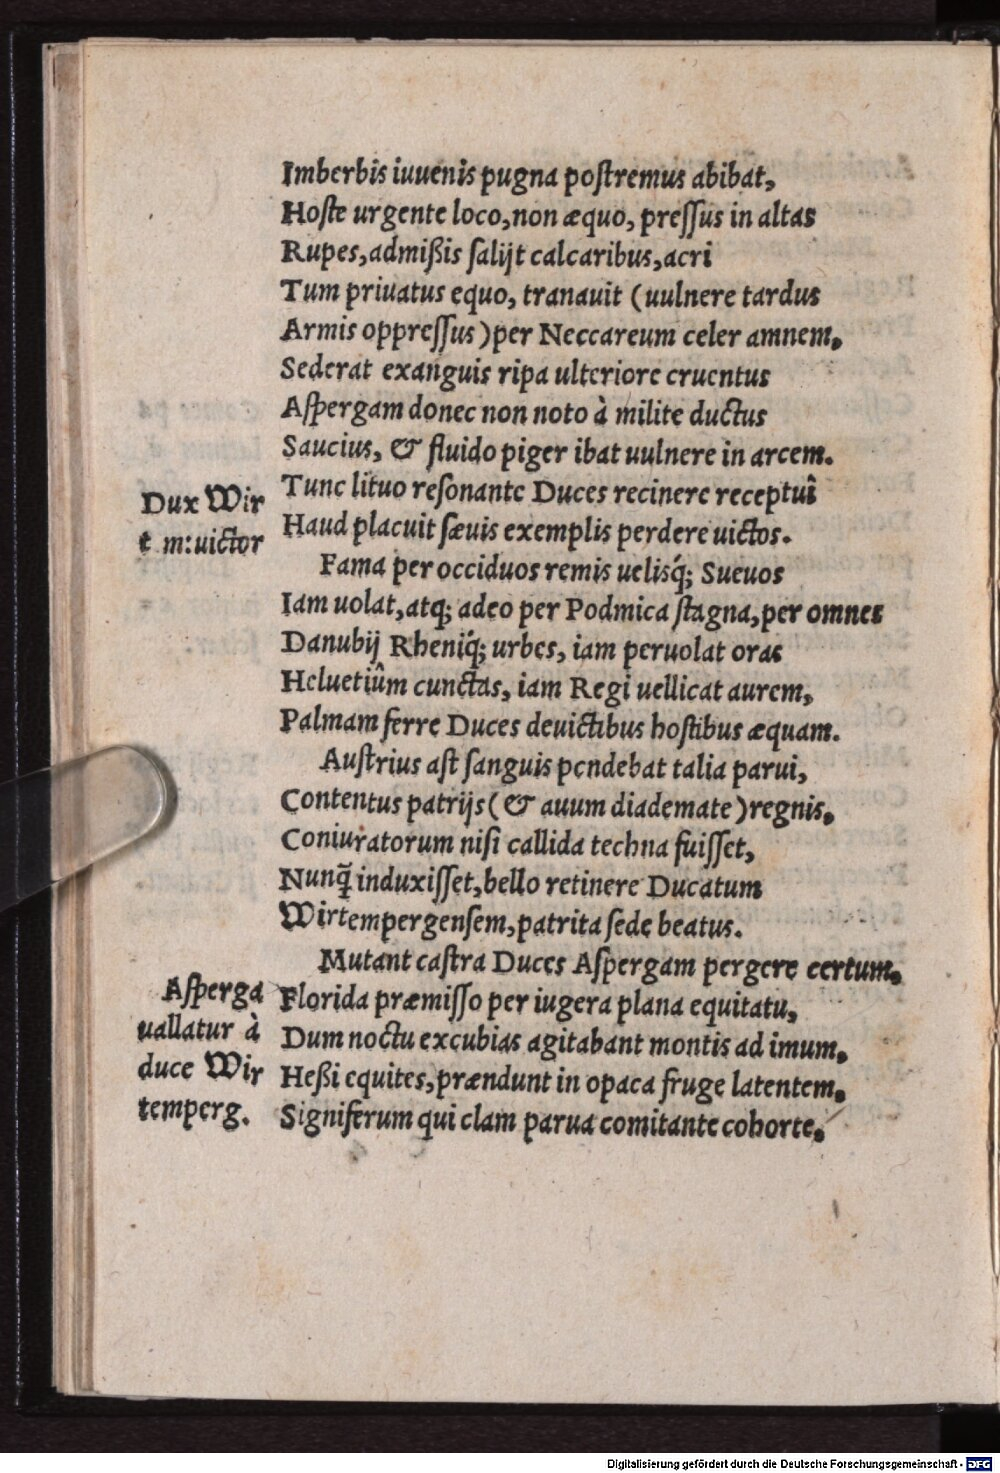 Imberbis iuuenis pugna postremus abibat,
Hoste urgente loco, non æquo, pressus in altas
Rupes, admißis salijt calcaribus, acri
Tum priuatus equo, tranauit (uulnere tardus
Armis oppressus) per Neccareum celer amnem.
Sederat exanguis ripa ulteriore cruentus
Aspergam donec non noto à milite ductus
Saucius, & fluido piger ibat uulnere in arcem.
Dux Wir
t m: uictor
Tunc lituo resonante Duces recinere receptuî
Haud placuit sæuis exemplis perdere uictos.
Fama per occiduos remis uelisq́; Sueuos
Iam uolat, atq; adeo per Podmica stagna, per omnes
Danubij Rheniq́; urbes, iam peruolat oras
Heluetiûm cunctas, iam Regi uellicat aurem,
Palmam ferre Duces deuictibus hostibus æquam.
Austrius ast sanguis pendebat talia parui,
Contentus patrijs (& auum diademate) regnis.
Coniuratorum nisi callida techna fuisset,
Nunq̃ induxisset, bello retinere Ducatum
Wirtempergensem, patrita sede beatus.
Mutant castra Duces Aspergam pergere certum.
Asperga
uallatur à
duce Wir
temperg.
Florida præmisso per iugera plana equitatu,
Dum noctu excubias agitabant montis ad imum.
Heßi equites, prændunt in opaca fruge latentem.
Signiferum qui clam parua comitante cohorte.
Digitalisierung gefördert durch die Deutsche Forschungsgemeinschaft - DFG